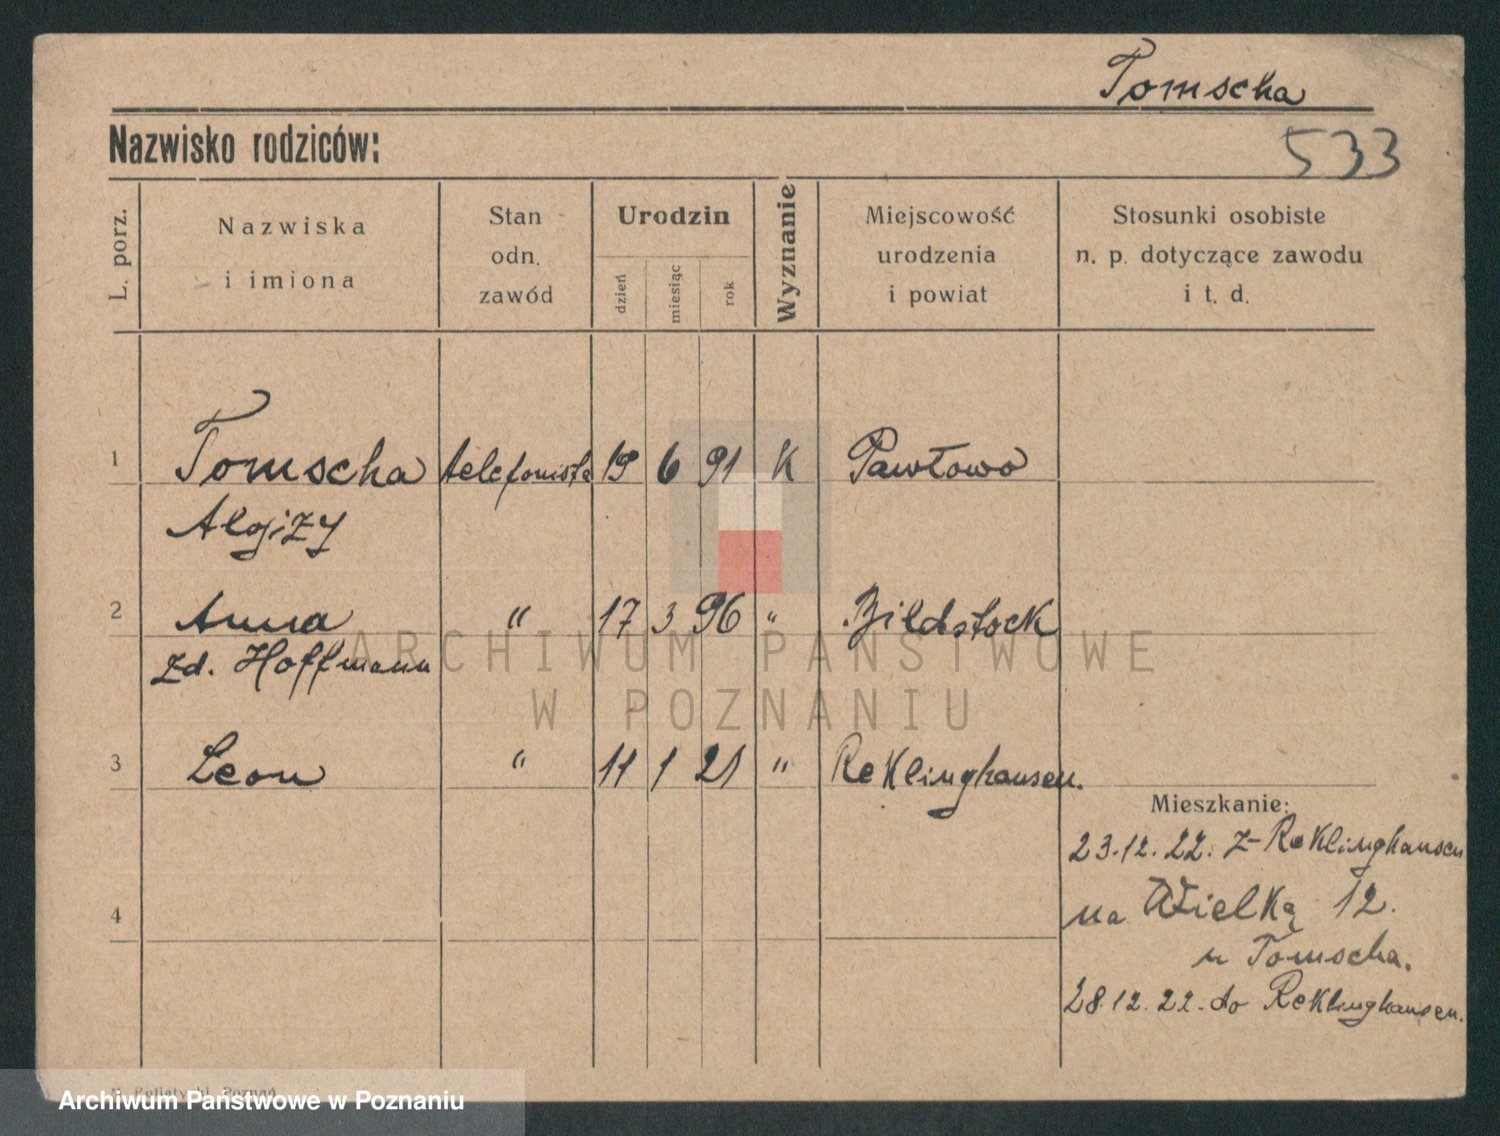 Tomscha
Nazwisko rodziców:
533
L. porz.
Nazwiska
i imiona
Stan
odn.
zawód
Urodzin
dzień
miesiąc
rok
Wyznanie
Miejscowość
urodzenia
i powiat
Stosunki osobiste
n. p. dotyczące zawodu
i t. d.
1 Tomscha telefonista 19 6 91 K Pawłowo
Alojzy
2 Anna " 17 3 96 " Bildstock
zd. Hoffmann
3 Leon " 11 1 21 " Reklinghausen.
Mieszkanie:
23.12.22. z Reklinghausen
na Wielką 12.
u Tomscha.
28.12.22. do Reklinghausen.
4
ARCHIWUM PAŃSTWOWE
W POZNANIU
Poznań
Archiwum Państwowe w Poznaniu